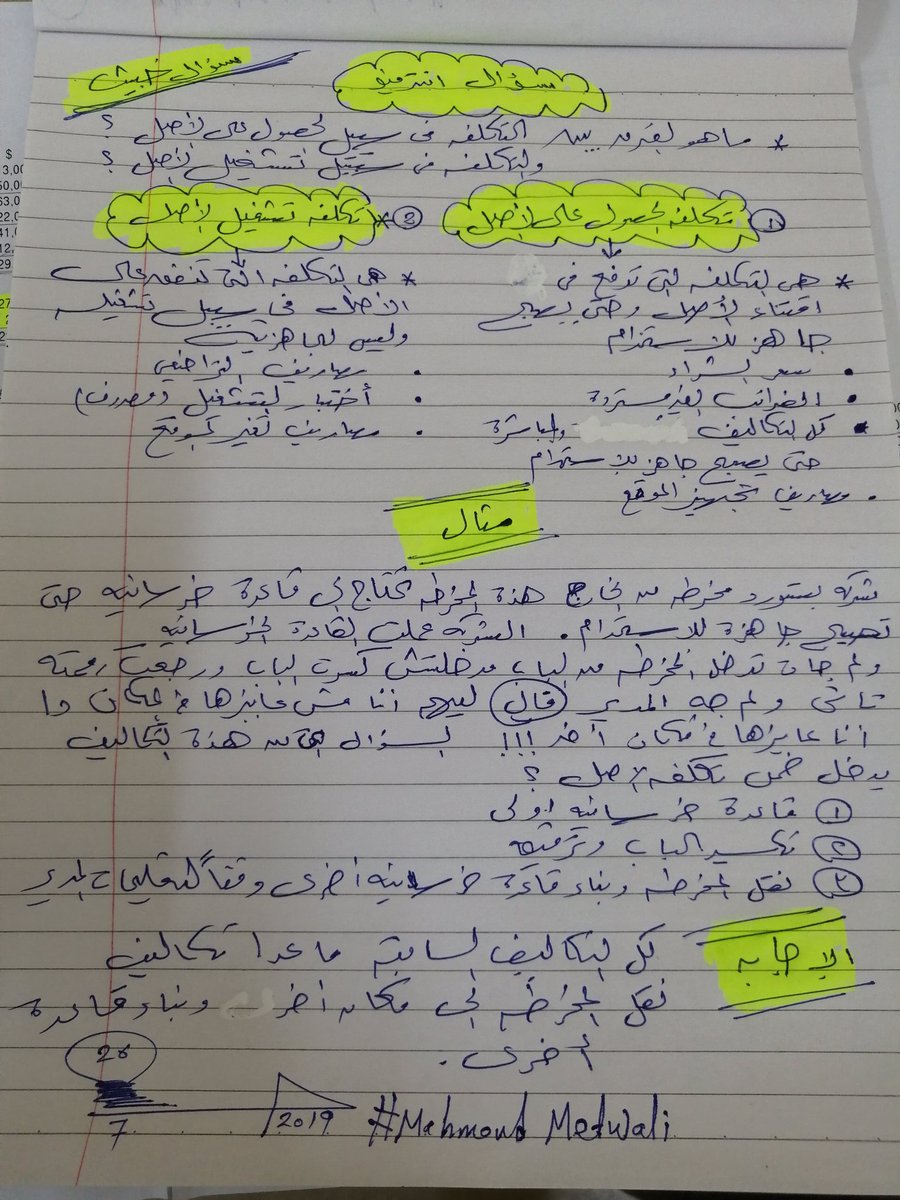 سؤال انترفيو
سؤال خبيث
* ما هو الفرق بين التكلفه فى سبيل الحصول على الأصل ؟
والتكلفه فى سبيل تشغيل الأصل ؟
① تكلفه الحصول على الأصل
* هى التكلفه التى تدفع فى
اقتناء الأصل وحتى يصبح
جاهز للاستخدام
• سعر الشراء
• الضرائب الغير مستردة
• كل التكاليف والمباشرة
حتى يصبح جاهز للاستخدام
• مصاريف تجهيز الموقع
② تكلفه تشغيل الأصل
* هى التكلفه التى تنفق على
الأصل فى سبيل تشغيله
وليس لجاهزيته
• مصاريف التراخيص
• أختبار التشغيل (مصروف)
• مصاريف الغير متوقع
مثال
شركه بستورد مخرطه من الخارج هذة المخرطه تحتاج إلى قاعدة خرسانيه حتى
تصبح جاهزة للاستخدام. الشركه عملت القاعدة الخرسانيه
ولم جات تدخل المخرطه من الباب مدخلتش كسرت الباب ورجعت رممته
تانى ولم جه المدير قال ليهم أنا مش عايزها فى المكان دا
أنا عايزها فى مكان أخر !!! السؤال من هذة التكاليف
يدخل ضمن تكلفه الاصل ؟
① قاعدة خرسانيه اولى
② تكسير الباب وترميمه
③ نقل المخرطه وبناء قاعدة خرسانيه أخرى وفقاً لتعليمات المدير
الاجابه
كل التكاليف السابقه ماعدا تكاليف
نقل المخرطه إلى مكان اخر وبناء قاعدة
أخرى.
28
7
2019
#Mahmoud Medwali